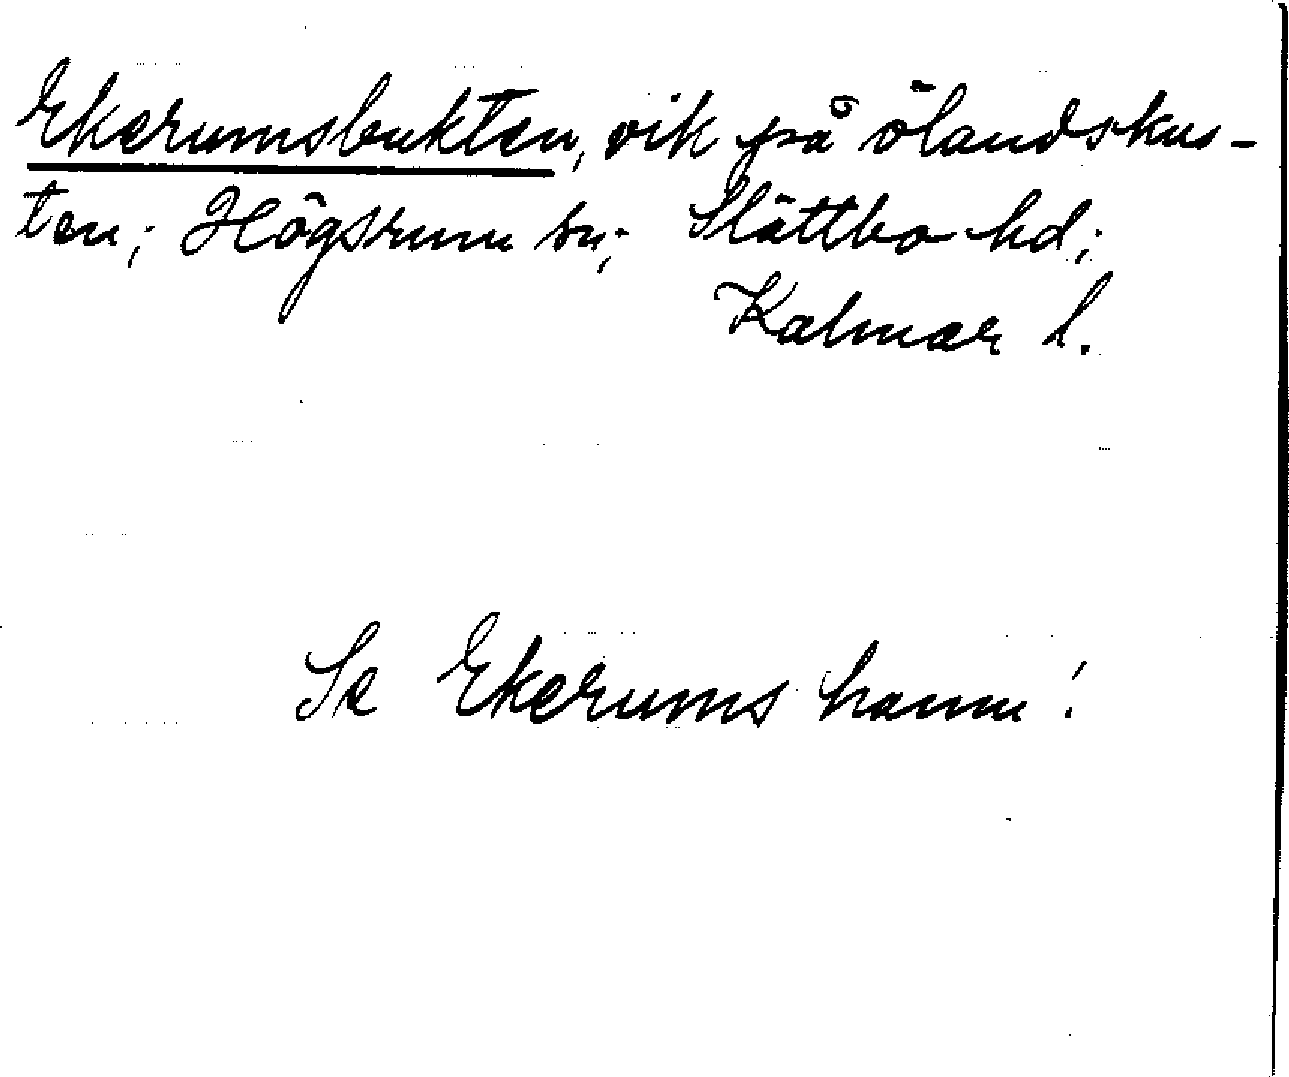 Ekerumsbukten, vik på ölandskus-
ten; Högsrum sn; Slättbo hd;
Kalmar l.
Se Ekerums hamn!